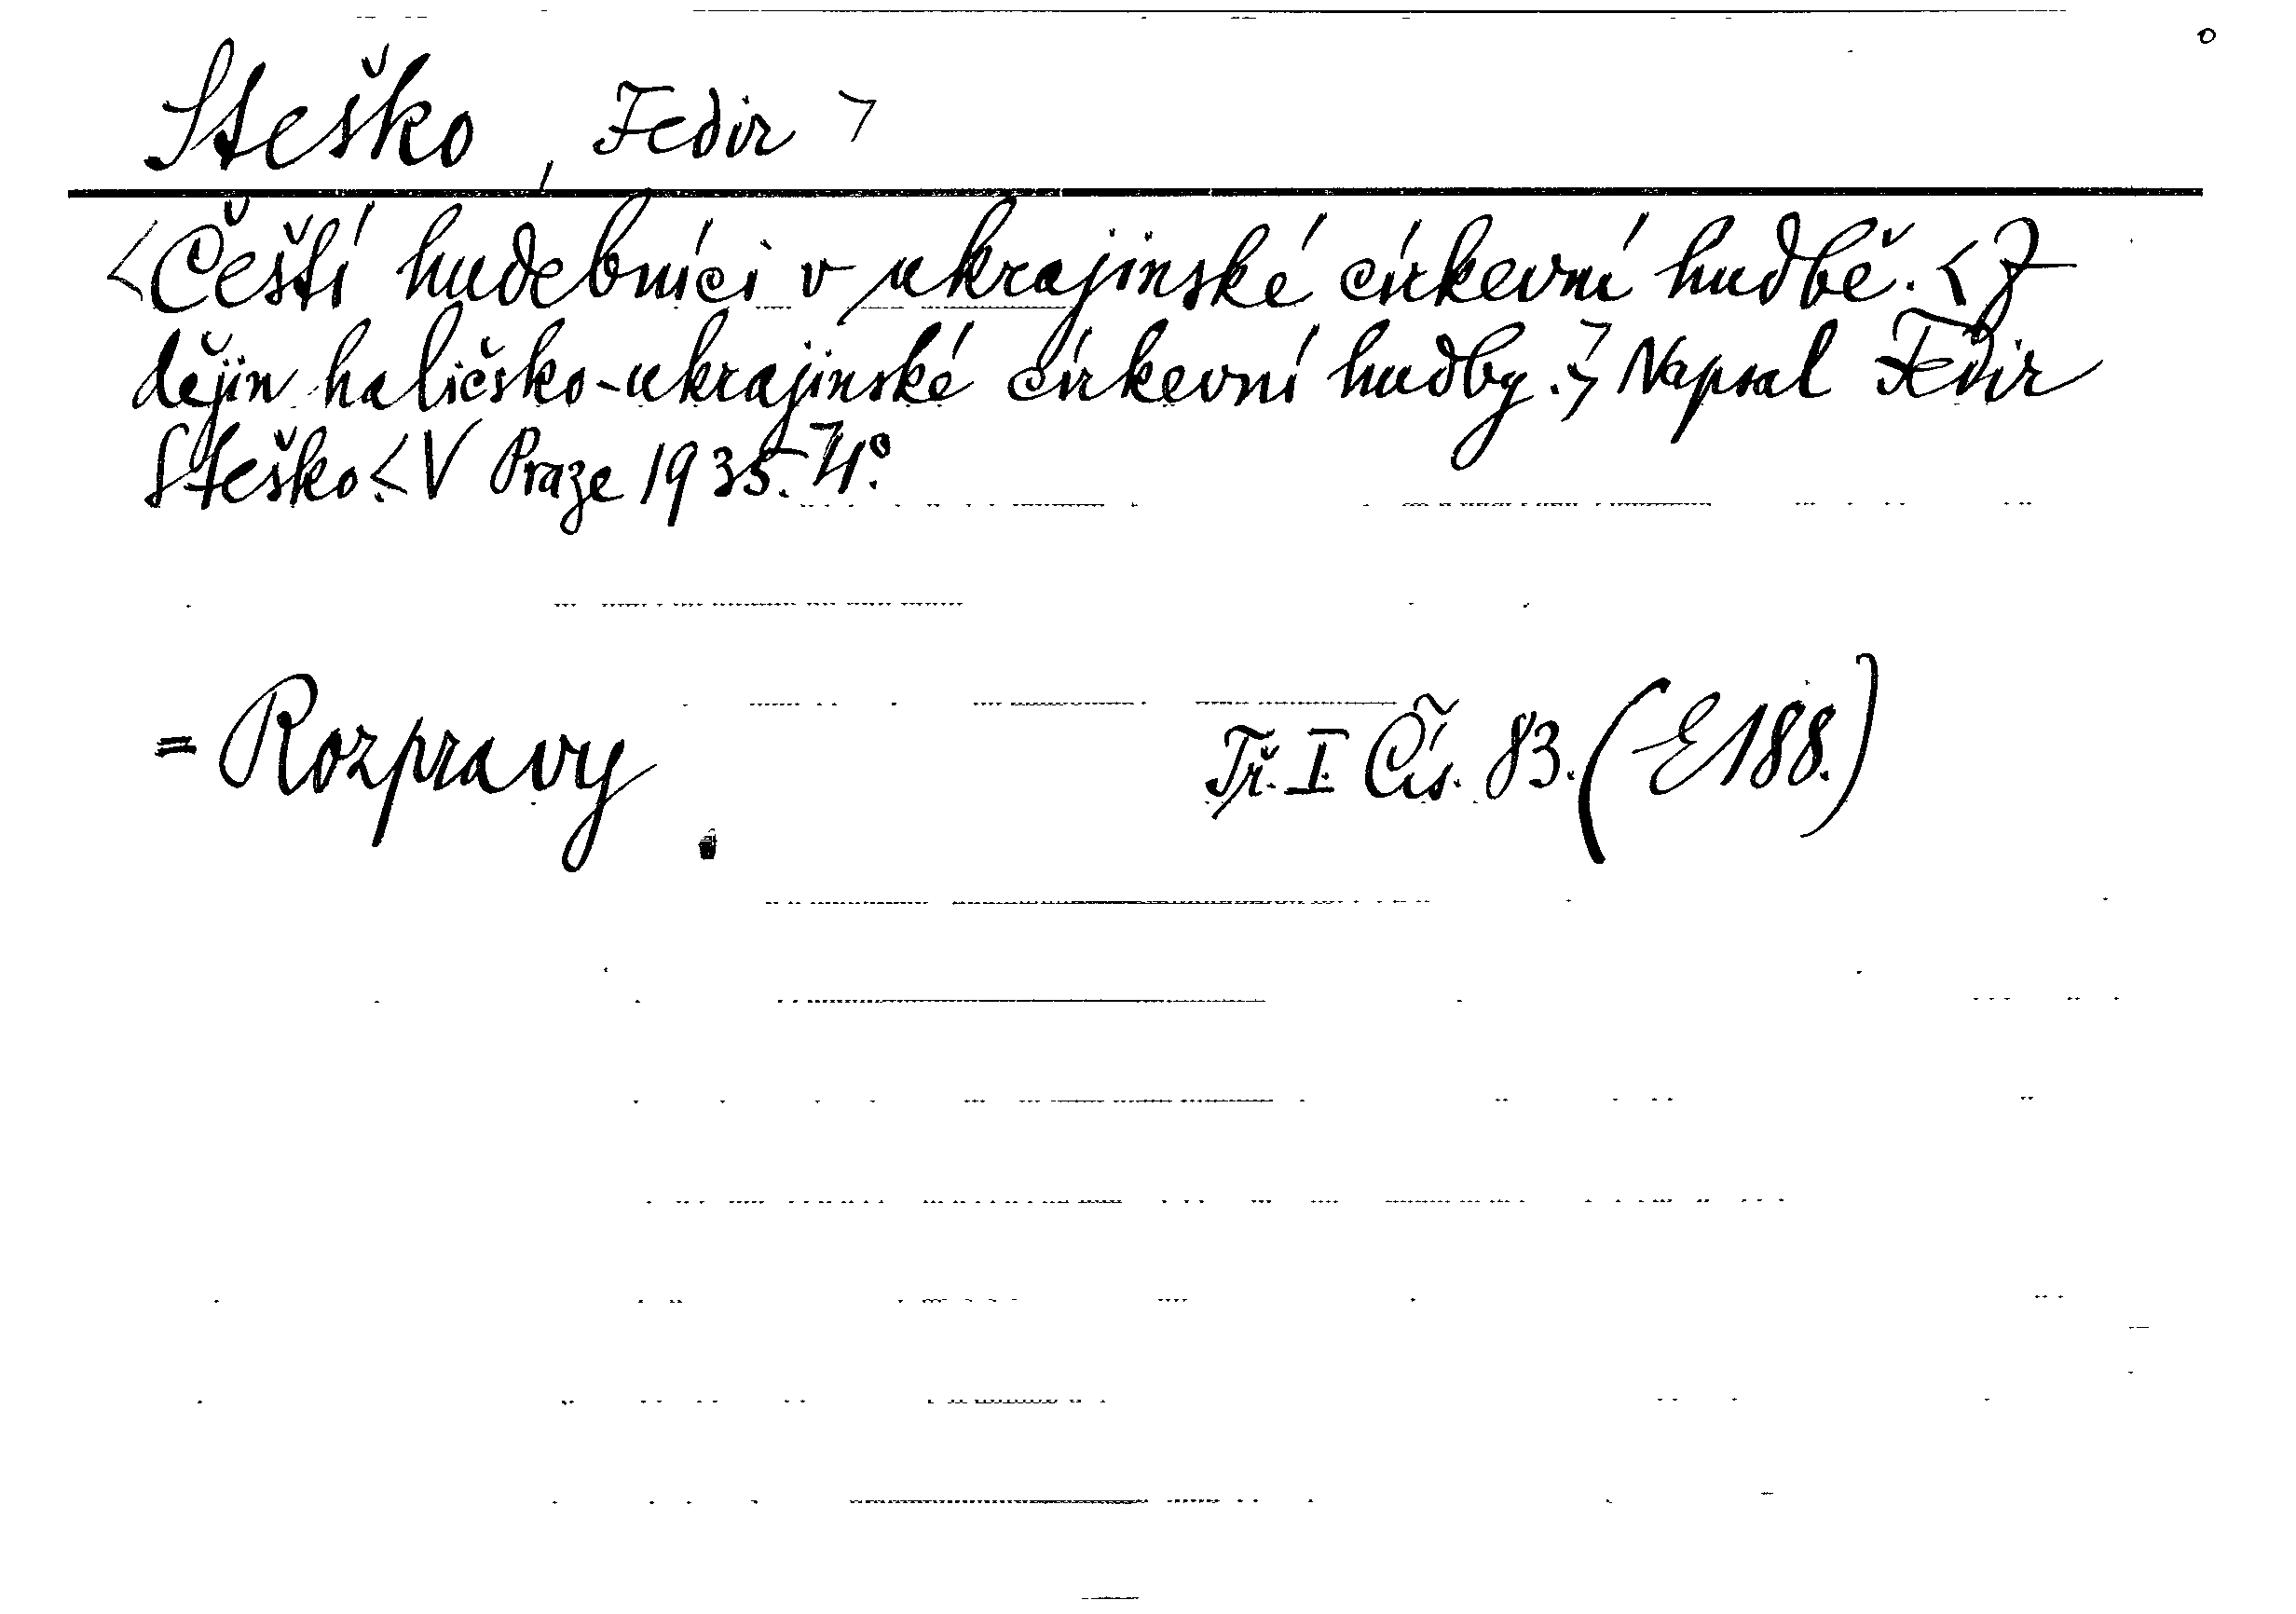 Steško, Fedir >
<Čeští hudebníci v ukrajinské církevní hudbě. <Z
dějin haličsko-ukrajinské církevní hudby.>> Napsal Fedir
Steško.< V Praze 1935.> 4°.
= Rozpravy Tř. I Čís. 83. (E 188.)